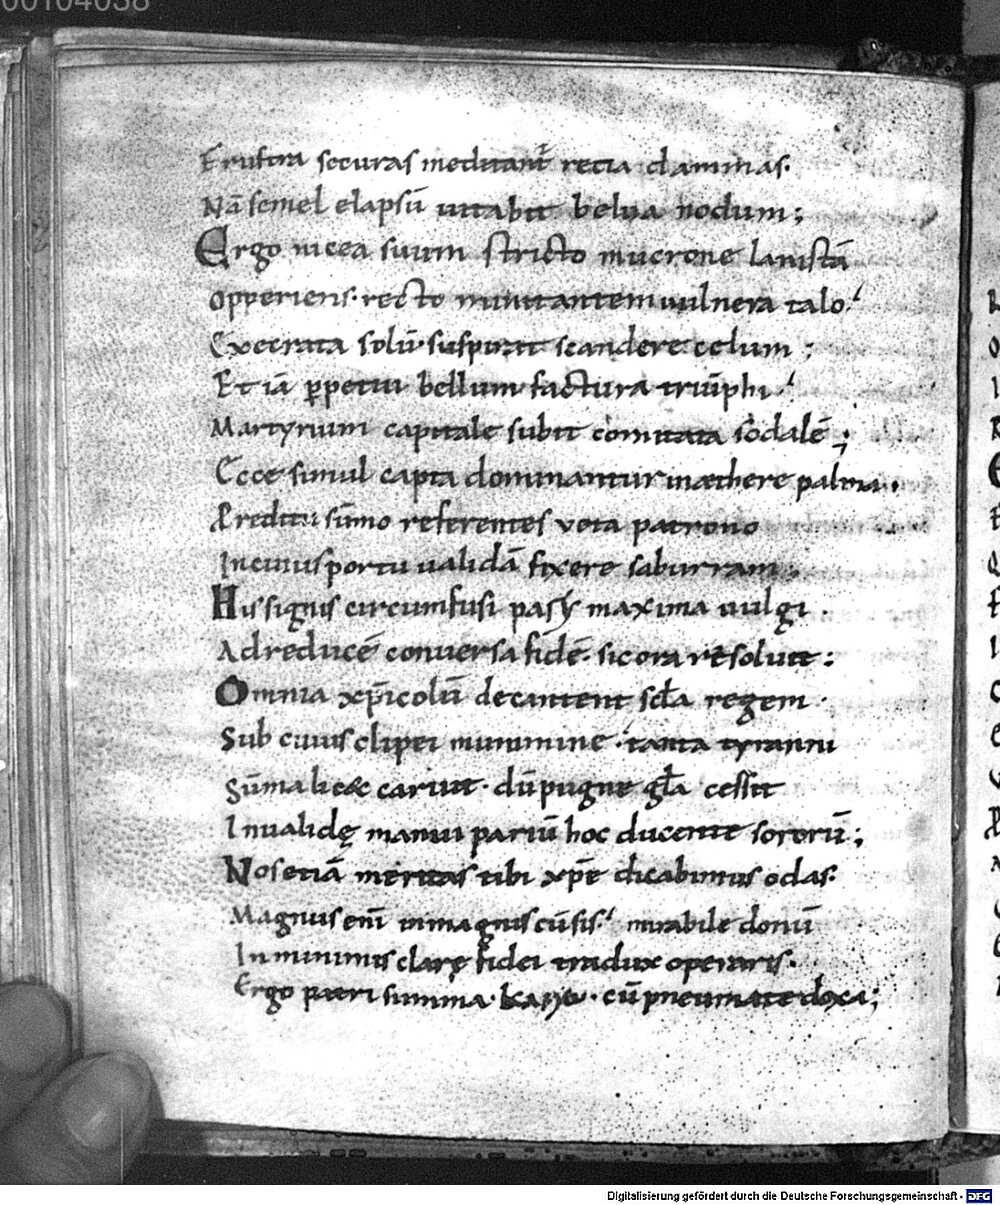 00104038
Erutora securas meditant̄ recia dammas.
Nā semel elapsū uitabit belua nodum;
Ergo nicea suum stricto mucrone lanistā
Opperiens. recto nuntantem uulnera talo.
Execrata solū suspirat scandere celum;
Et iā ꝑpetui bellum factura triūphi.
Martyrium capitale subit comitata sodalē;
Ecce simul capta dominantur in æthere palma.
Preditu sūmo referentes vota patrono
In cuius portu ualidā fixere saburram.
His signis circumfusi pars maxima uulgi.
Ad reducē conuersa fidē. sic ora resoluit:
Omnia xp̄icolū decantent scl̄a regem.
Sub cuius clipei munimine. tanta tyranni
Sūma li caruit. dū pugne gl̄a cessit
Inualidę manui pariū hoc ducente sororū;
Nos etiā meritas tibi xp̄e dicabimus odas.
Magnus enī in magnis cūsis. mirabile donū
In minimis clarę fidei tradux operaris.
Ergo patri summa. cū pneumate doxa;
Digitalisierung gefördert durch die Deutsche Forschungsgemeinschaft - DFG